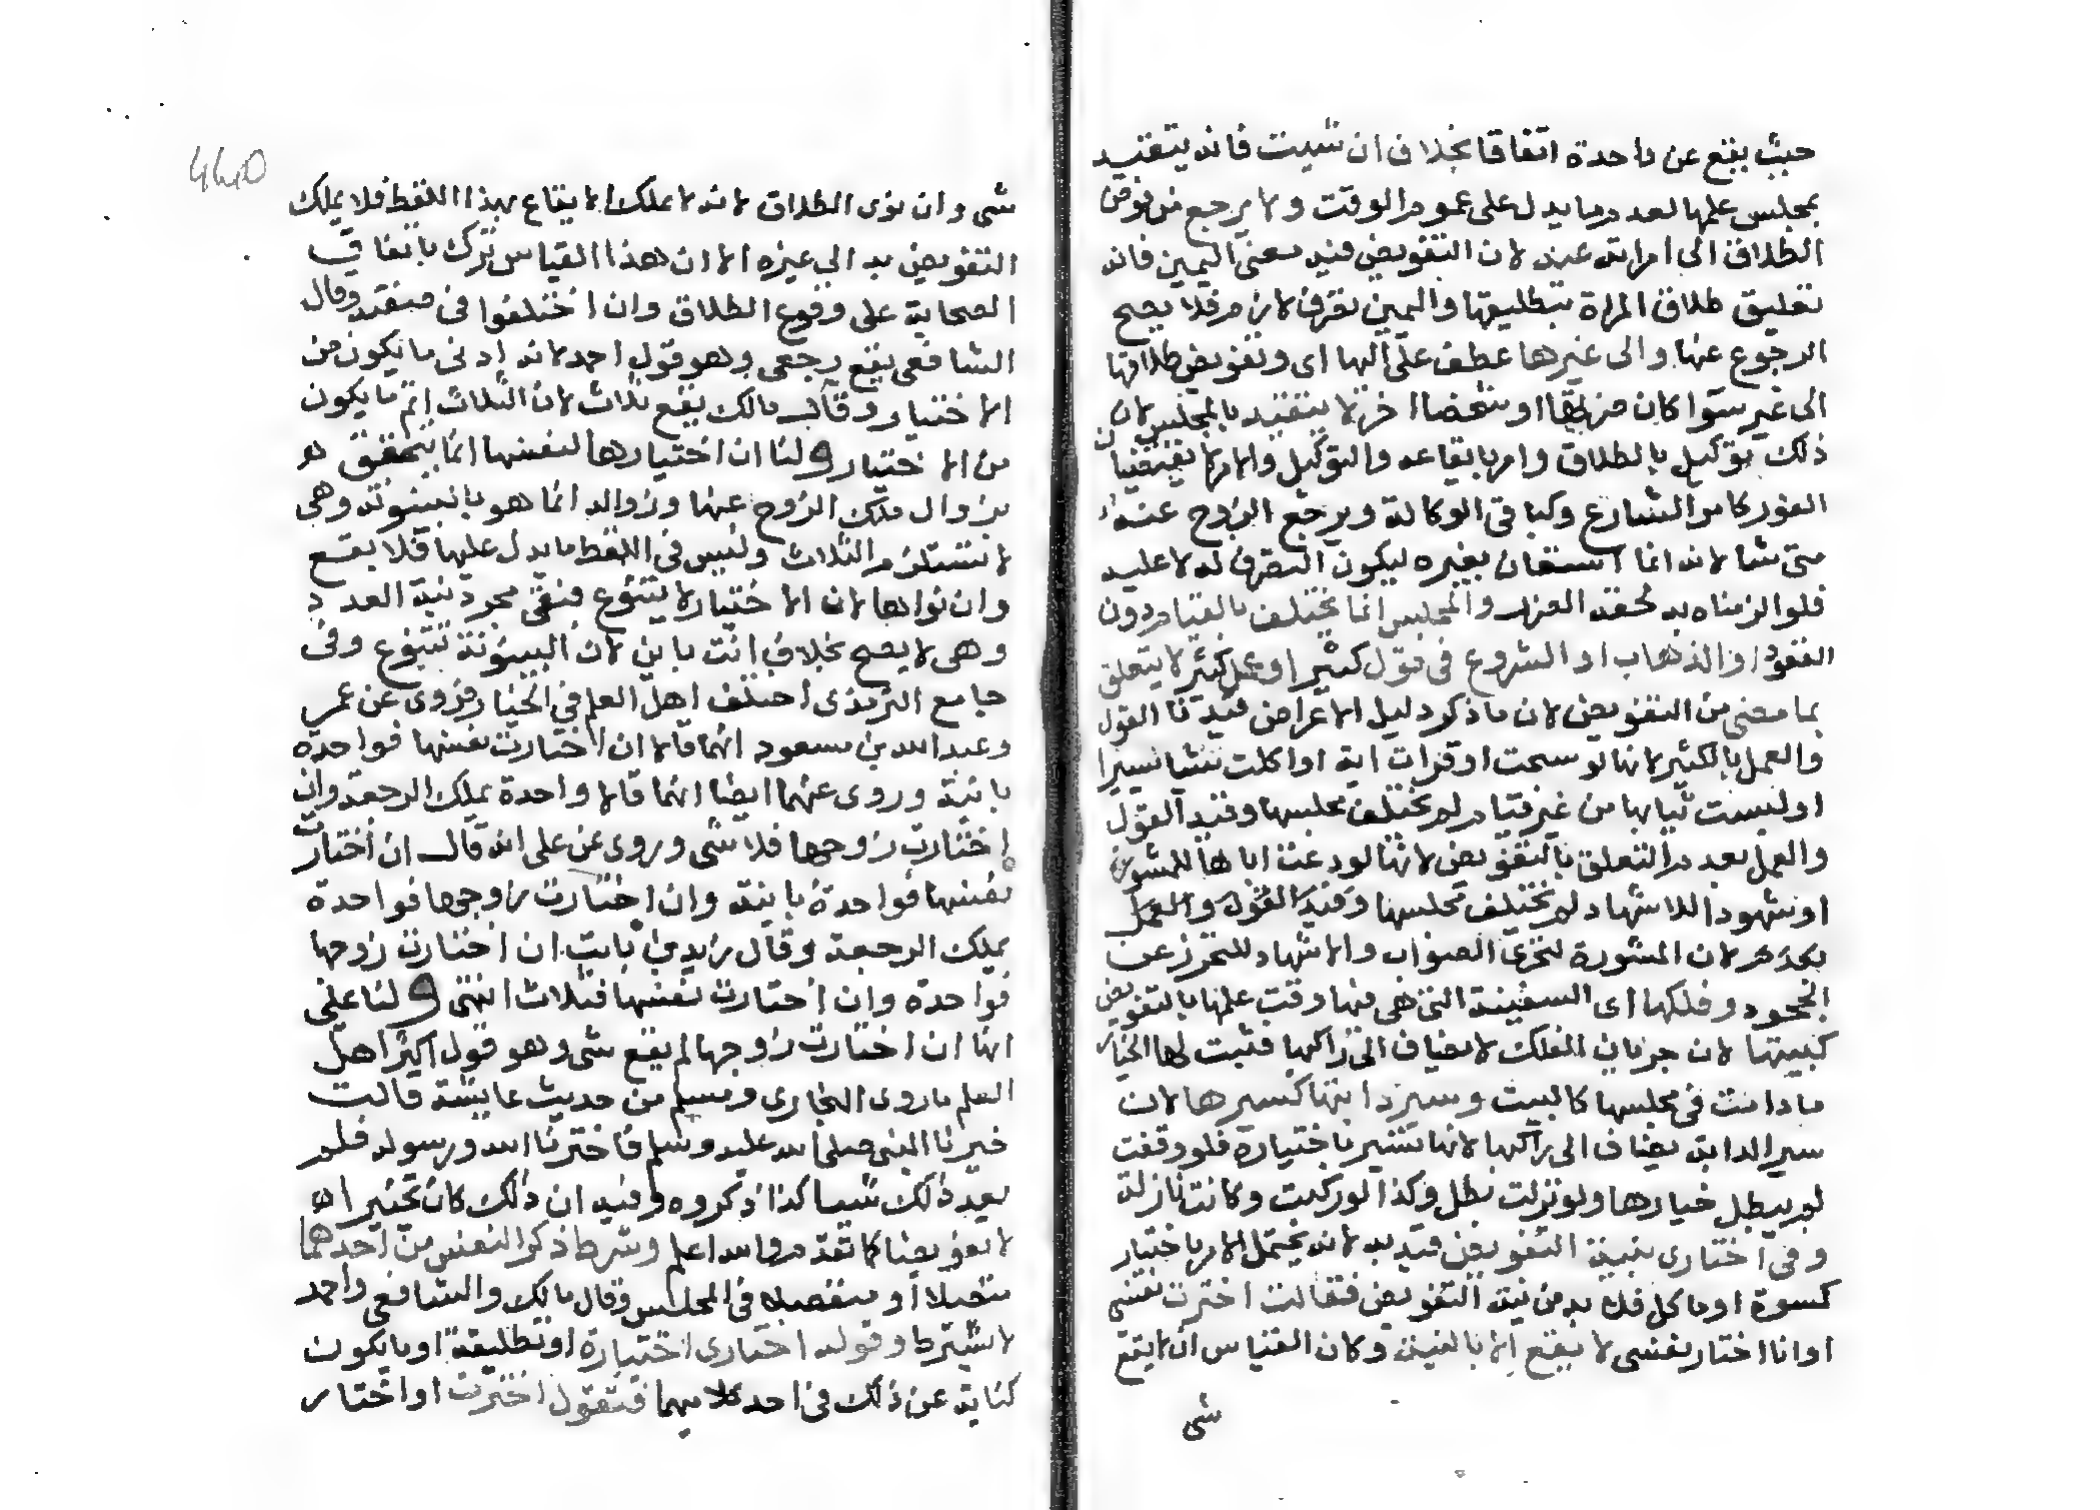 حيث يقع عن واحدة اتفاقا بخلاف ان شيت فانه يتقيد
بمجلس علمها لعدم ما يدل على عموم الوقت ولا يرجع من فوض
الطلاق الى امراته عنه لان التفويض فيه معنى اليمين فانه
تعليق طلاق المراة بتطليقها واليمين تصرف لازم فلا يصح
الرجوع عنها والى غيرها عطف على اليها اى وتفويض طلاقها
الى غير سوا كان ضرتها او شخصا اخر لا يتقيد بالمجلس لان
ذلك توكيل بالطلاق وامر بايقاعه والتوكيل والامر لا يقتضيان
الفور كامر الشارع وكما فى الوكالة ويرجع الزوج عنه
متى شا لانه انما استعان بغيره ليكون التصرف له لا عليه
فلو الزمناه به لحقه الضرر والمجلس انما يختلف بالقيام دون
القعود او الذهاب او الشروع فى قول كثير او عمل كثير لا يتعلق
بما مضى من التفويض لان ما ذكر دليل الاعراض قيدنا القول
والعمل بالكثير لانها لو سبحت او قرات اية او اكلت شيئا يسيرا
او لبست ثيابها من غير قيام لم يختلف مجلسها وقيد القول
والعمل بعدم التعلق بالتفويض لانها لو دعت اباها للمشورة
او شهودا للاشهاد لم يختلف مجلسها وقيد القول والعمل
بعدم لان المشورة لتحرى الصواب والاشهاد للتحرز عن
الجحود وفلكها اى السفينة التى هى فيها وقت علمها بالتفويض
كبيتها لان جريان الفلك لا يضاف الى راكبها فثبت لها الخيار
ما دامت فى مجلسها كالبيت وسير دابتها كسيرها لان
سير الدابة يضاف الى راكبها لانها تسير باختياره فلو وقفت
لم يبطل خيارها ولو نزلت بطل وكذا لو ركبت وكانت نازلة
وفى اختارى بنية التفويض قيد به لانه يحتمل الامر باختيار
كسوة او ماكل فلا بد من نية التفويض فقالت اخترت نفسى
او انا اختار نفسى لا يقع الا بالنية وكان القياس ان لا يقع
شى
440
شى وان نوى الطلاق لانه لا يملك الايقاع بهذا اللفظ فلا يملك
التفويض به الى غيره الا ان هذا القياس ترك باتفاق
الصحابة على وقوع الطلاق وان اختلفوا فى صفته وقال
الشافعى يقع رجعى وهو قول احمد لانه ادنى ما يكون من
الاختيار وقال مالك يقع ثلاث لان الثلاث اتم ما يكون
من الاختيار ولنا ان اختيارها لنفسها انما يتحقق هو
بزوال ملك الزوج عنها وزواله انما هو بالبينونة وهى
لا تستلزم الثلاث وليس فى اللفظ ما يدل عليها فلا يقع
وان نواها لان الاختيار لا يتنوع فبقى مجرد نية العدد
وهى لا يصح بخلاف انت باين لان البينونة تتنوع وفى
جامع الترمذى اختلف اهل العلم فى الخيار فروى عن عمر
وعبد الله بن مسعود انهما قالا ان اختارت نفسها فواحدة
باينة وروى عنهما ايضا انهما قالا واحدة يملك الرجعة وان
اختارت زوجها فلا شى وروى عن على انه قال ان اختارت
نفسها فواحدة باينة وان اختارت زوجها فواحدة
يملك الرجعة وقال زيد بن ثابت ان اختارت زوجها
فواحدة وان اختارت نفسها فثلاث انتهى ولنا على
انها ان اختارت زوجها لم يقع شى وهو قول اكثر اهل
العلم ما روى البخارى ومسلم من حديث عايشة قالت
خيرنا النبى صلى الله عليه وسلم فاخترنا الله ورسوله فلم
يعد ذلك شيا كذا ذكروه وفيه ان ذلك كان تخييرا
لا تفويضا كما تقدم والله اعلم وشرط ذكر النفس من احدهما
متصلا او منفصلا فى المجلس وقال مالك والشافعى واحمد
لا يشترط وقوله اختارى اختيارة او تطليقة او ما يكون
كناية عن ذلك فى احد كلاميهما فتقول اخترت او اختار